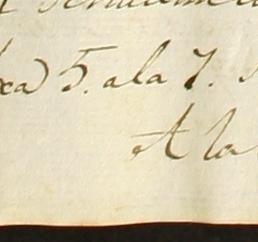 xa) 5. a la 7.
A la